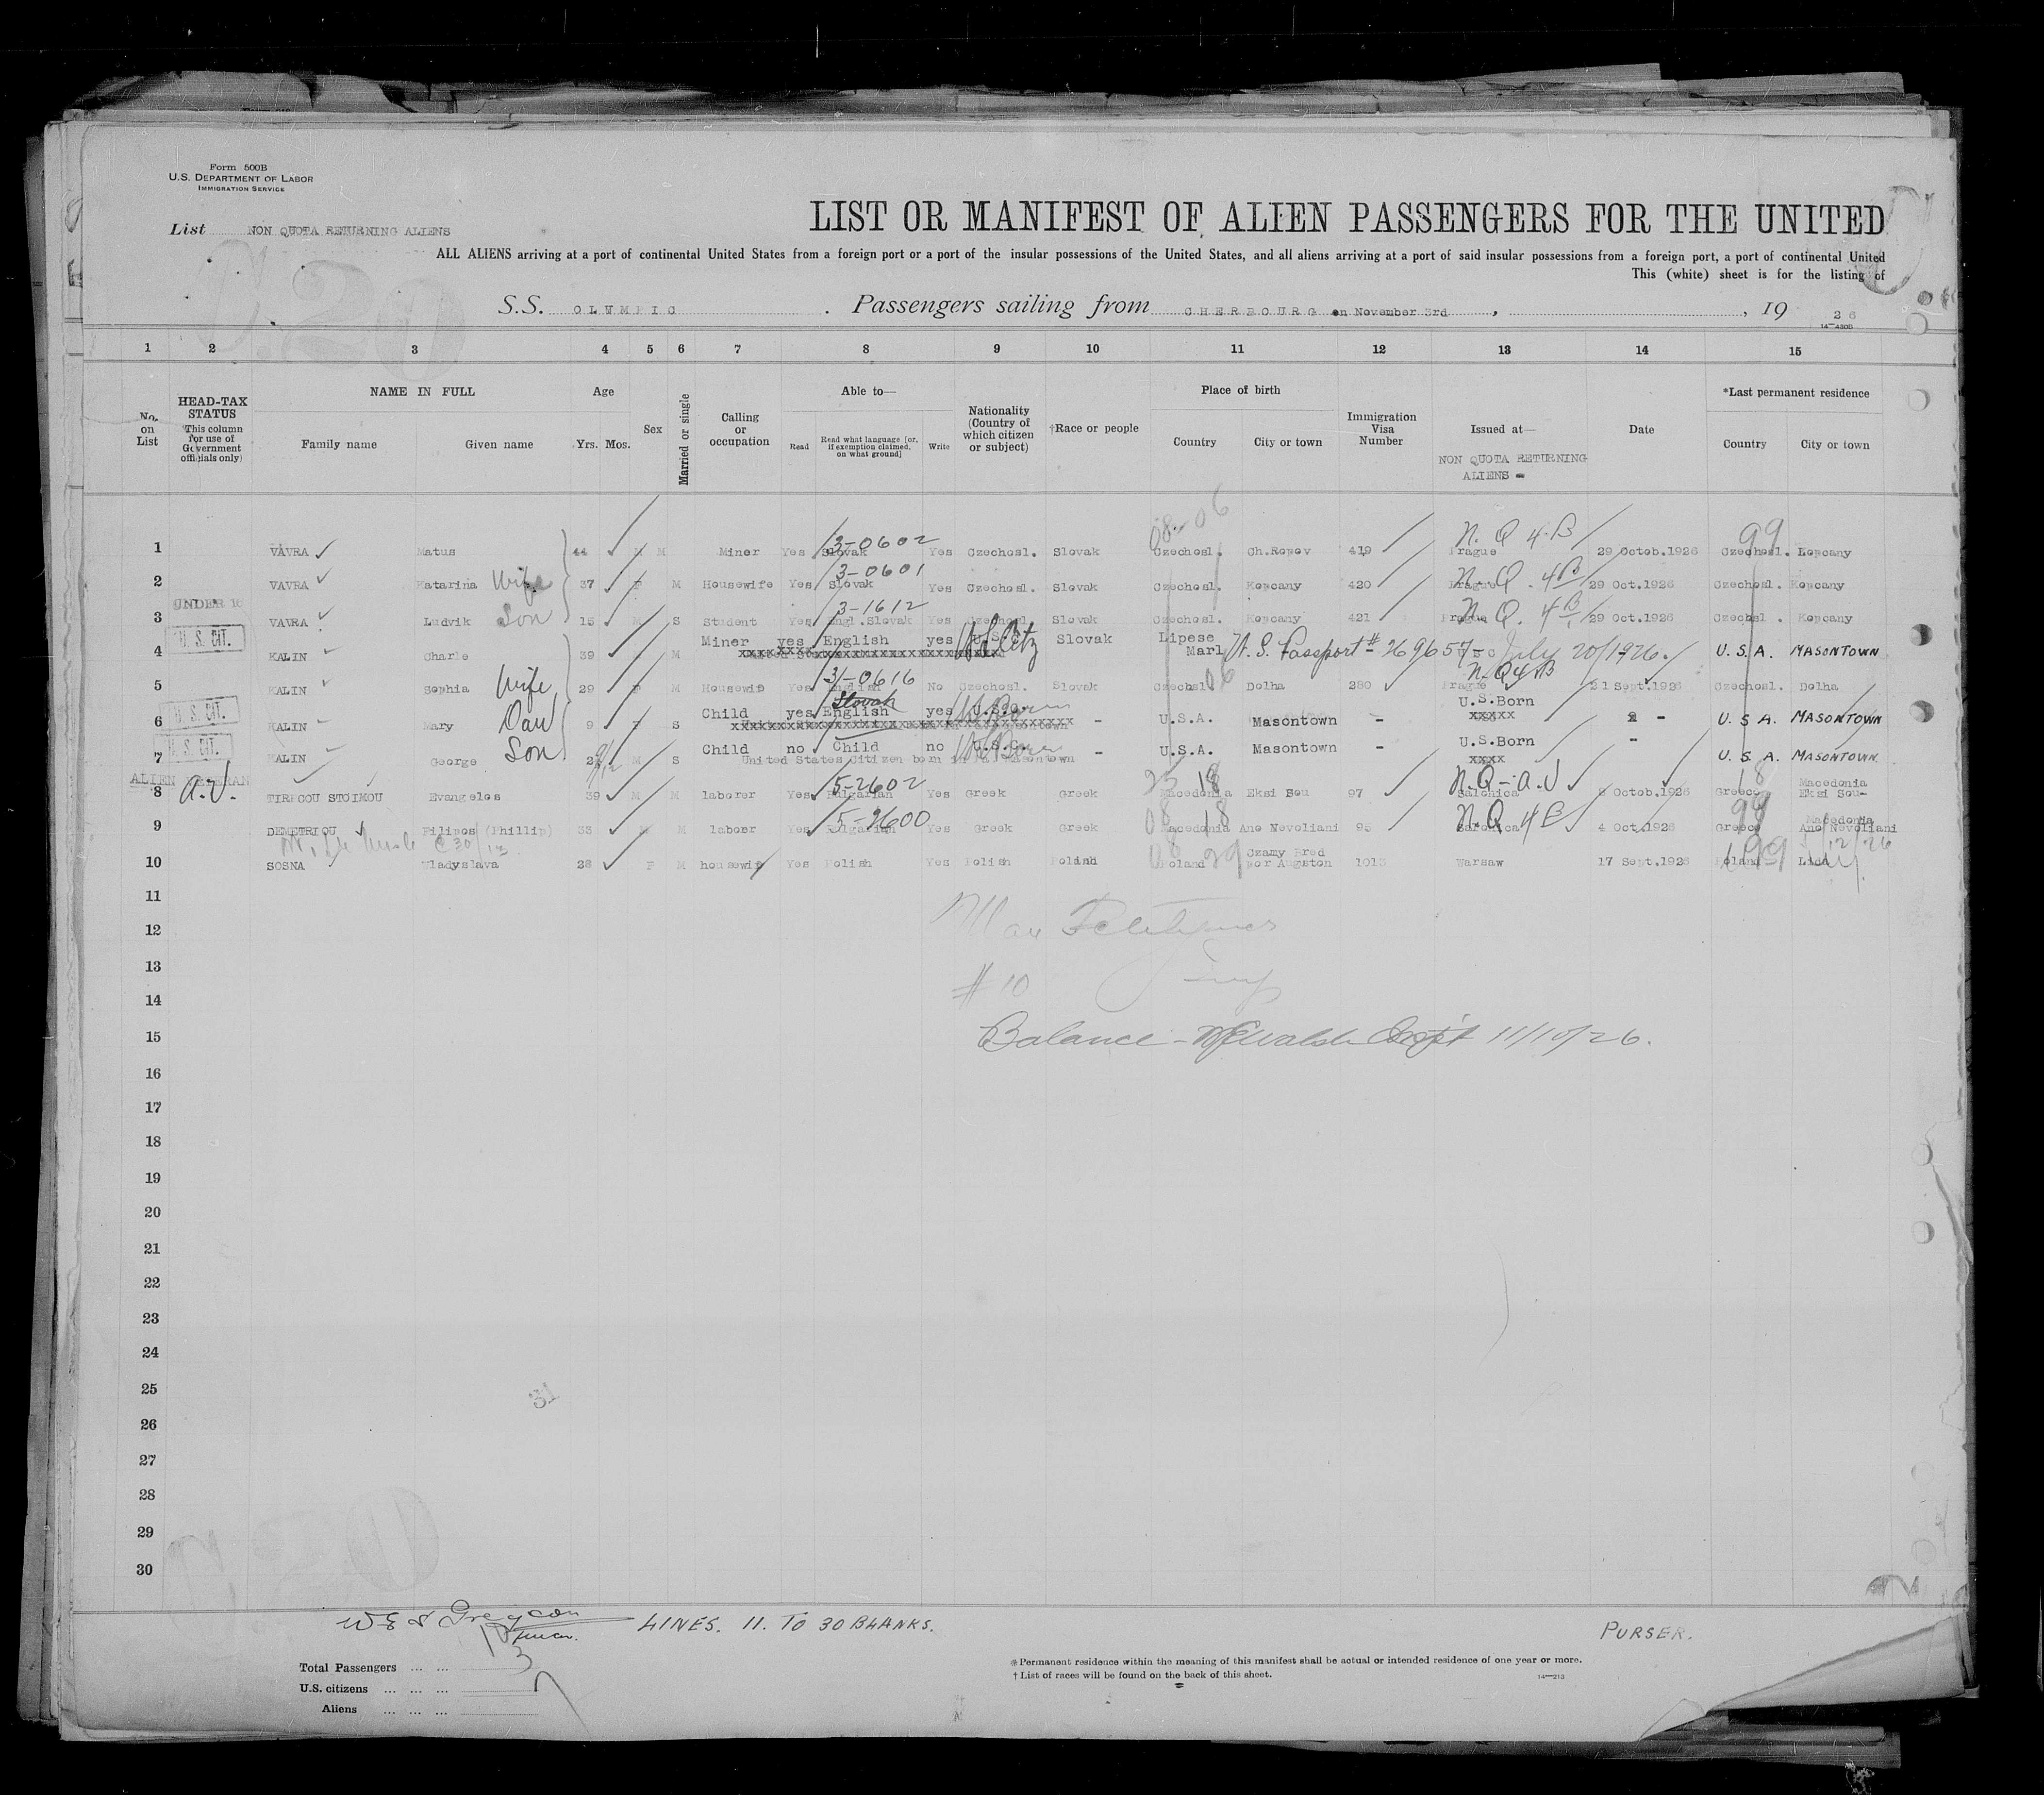 Form 500B
U.S. DEPARTMENT OF LABOR
IMMIGRATION SERVICE
LIST OR MANIFEST OF ALIEN PASSENGERS FOR THE UNITED
List NON QUOTA RETURNING ALIENS
ALL ALIENS arriving at a port of continental United States from a foreign port or a port of the insular possessions of the United States, and all aliens arriving at a port of said insular possessions from a foreign port, a port of continental United
This (white) sheet is for the listing of
S.S. OLYMPIC . Passengers sailing from CHERBOURG on November 3rd , , 19 26
14—430B
1 2 3 4 5 6 7 8 9 10 11 12 13 14 15
No. on List
HEAD-TAX STATUS
(This column for use of Government officials only)
NAME IN FULL
Family name Given name
Age
Yrs. Mos.
Sex
Married or single
Calling or occupation
Able to—
Read
Read what language [or, if exemption claimed, on what ground]
Write
Nationality (Country of which citizen or subject)
†Race or people
Place of birth
Country City or town
Immigration Visa Number
Issued at—
NON QUOTA RETURNING
ALIENS -
Date
*Last permanent residence
Country City or town
08-06
3-0602 N.Q 4B 99
1 VAVRA Matus 44 M M Miner Yes Slovak Yes Czechosl. Slovak Czechosl. Ch.Ropov 419 Prague 29 Octob.1926 Czechosl. Kopcany
3-0601 N.Q. 4B
2 VAVRA Katarina Wife 37 F M Housewife Yes Slovak Yes Czechosl. Slovak Czechosl. Kopcany 420 Prague 29 Oct.1926 Czechosl. Kopcany
UNDER 16 3-1612 N.Q. 4B
3 VAVRA Ludvik Son 15 M S Student Yes Engl.Slovak Yes Czechosl. Slovak Czechosl. Kopcany 421 Prague 29 Oct.1926 Czechosl. Kopcany
U. S. CIT. Miner yes English yes U.S. Citz Slovak Lipese
4 KALIN Charle 39 M M Marl U.S. Passport # 269657 July 20/1926. U.S.A. MASONTOWN
3-0616 N.Q 4B
5 KALIN Sophia Wife 29 F M Housewife Yes English Slovak No Czechosl. Slovak Czechosl 06 Dolha 280 Prague 21 Sept.1926 Czechosl. Dolha
U. S. CIT. U.S.Born
6 KALIN Mary Dau 9 F S Child yes English yes U.S.C. - U.S.A. Masontown - xxxxx - U S A. MASONTOWN
U. S. CIT. U.S.Born
7 KALIN George Son 2 9/12 M S Child no Child no U.S.C. - U.S.A. Masontown - xxxx - U S A. MASONTOWN.
United States Citizen born in Masontown
ALIEN VETERAN 5-2602 N.Q-A.V 18 Macedonia
8 A.V. TIRICOU STOIMOU Evangelos 39 M M laborer Yes Bulgarian Yes Greek Greek Macedonia Eksi Sou 97 Salonica 8 Octob.1926 Greece Eksi Sou-
5-2600 08 18 N.Q 4B 99 Macedonia
9 DEMETRIOU Filipos (Phillip) 33 M M laboer Yes Bulgarian Yes Greek Greek Macedonia Ano Nevoliani 95 Salonica 4 Oct.1926 Greece Ano Nevoliani
Czamy Bred
10 SOSNA Wladyslava 28 F M housewife Yes Polish Yes Polish Poland Poland por Augston 1013 Warsaw 17 Sept.1926 Poland Lida
11
12
13
14 #10
15 Balance - Walsh Inspt 11/10/26.
16
17
18
19
20
21
22
23
24
25
31
26
27
28
29
30
LINES. 11. TO 30 BLANKS. PURSER.
Total Passengers ... ...
U.S. citizens ... ... ...
Aliens ... ... ...
*Permanent residence within the meaning of this manifest shall be actual or intended residence of one year or more.
†List of races will be found on the back of this sheet.
14—213